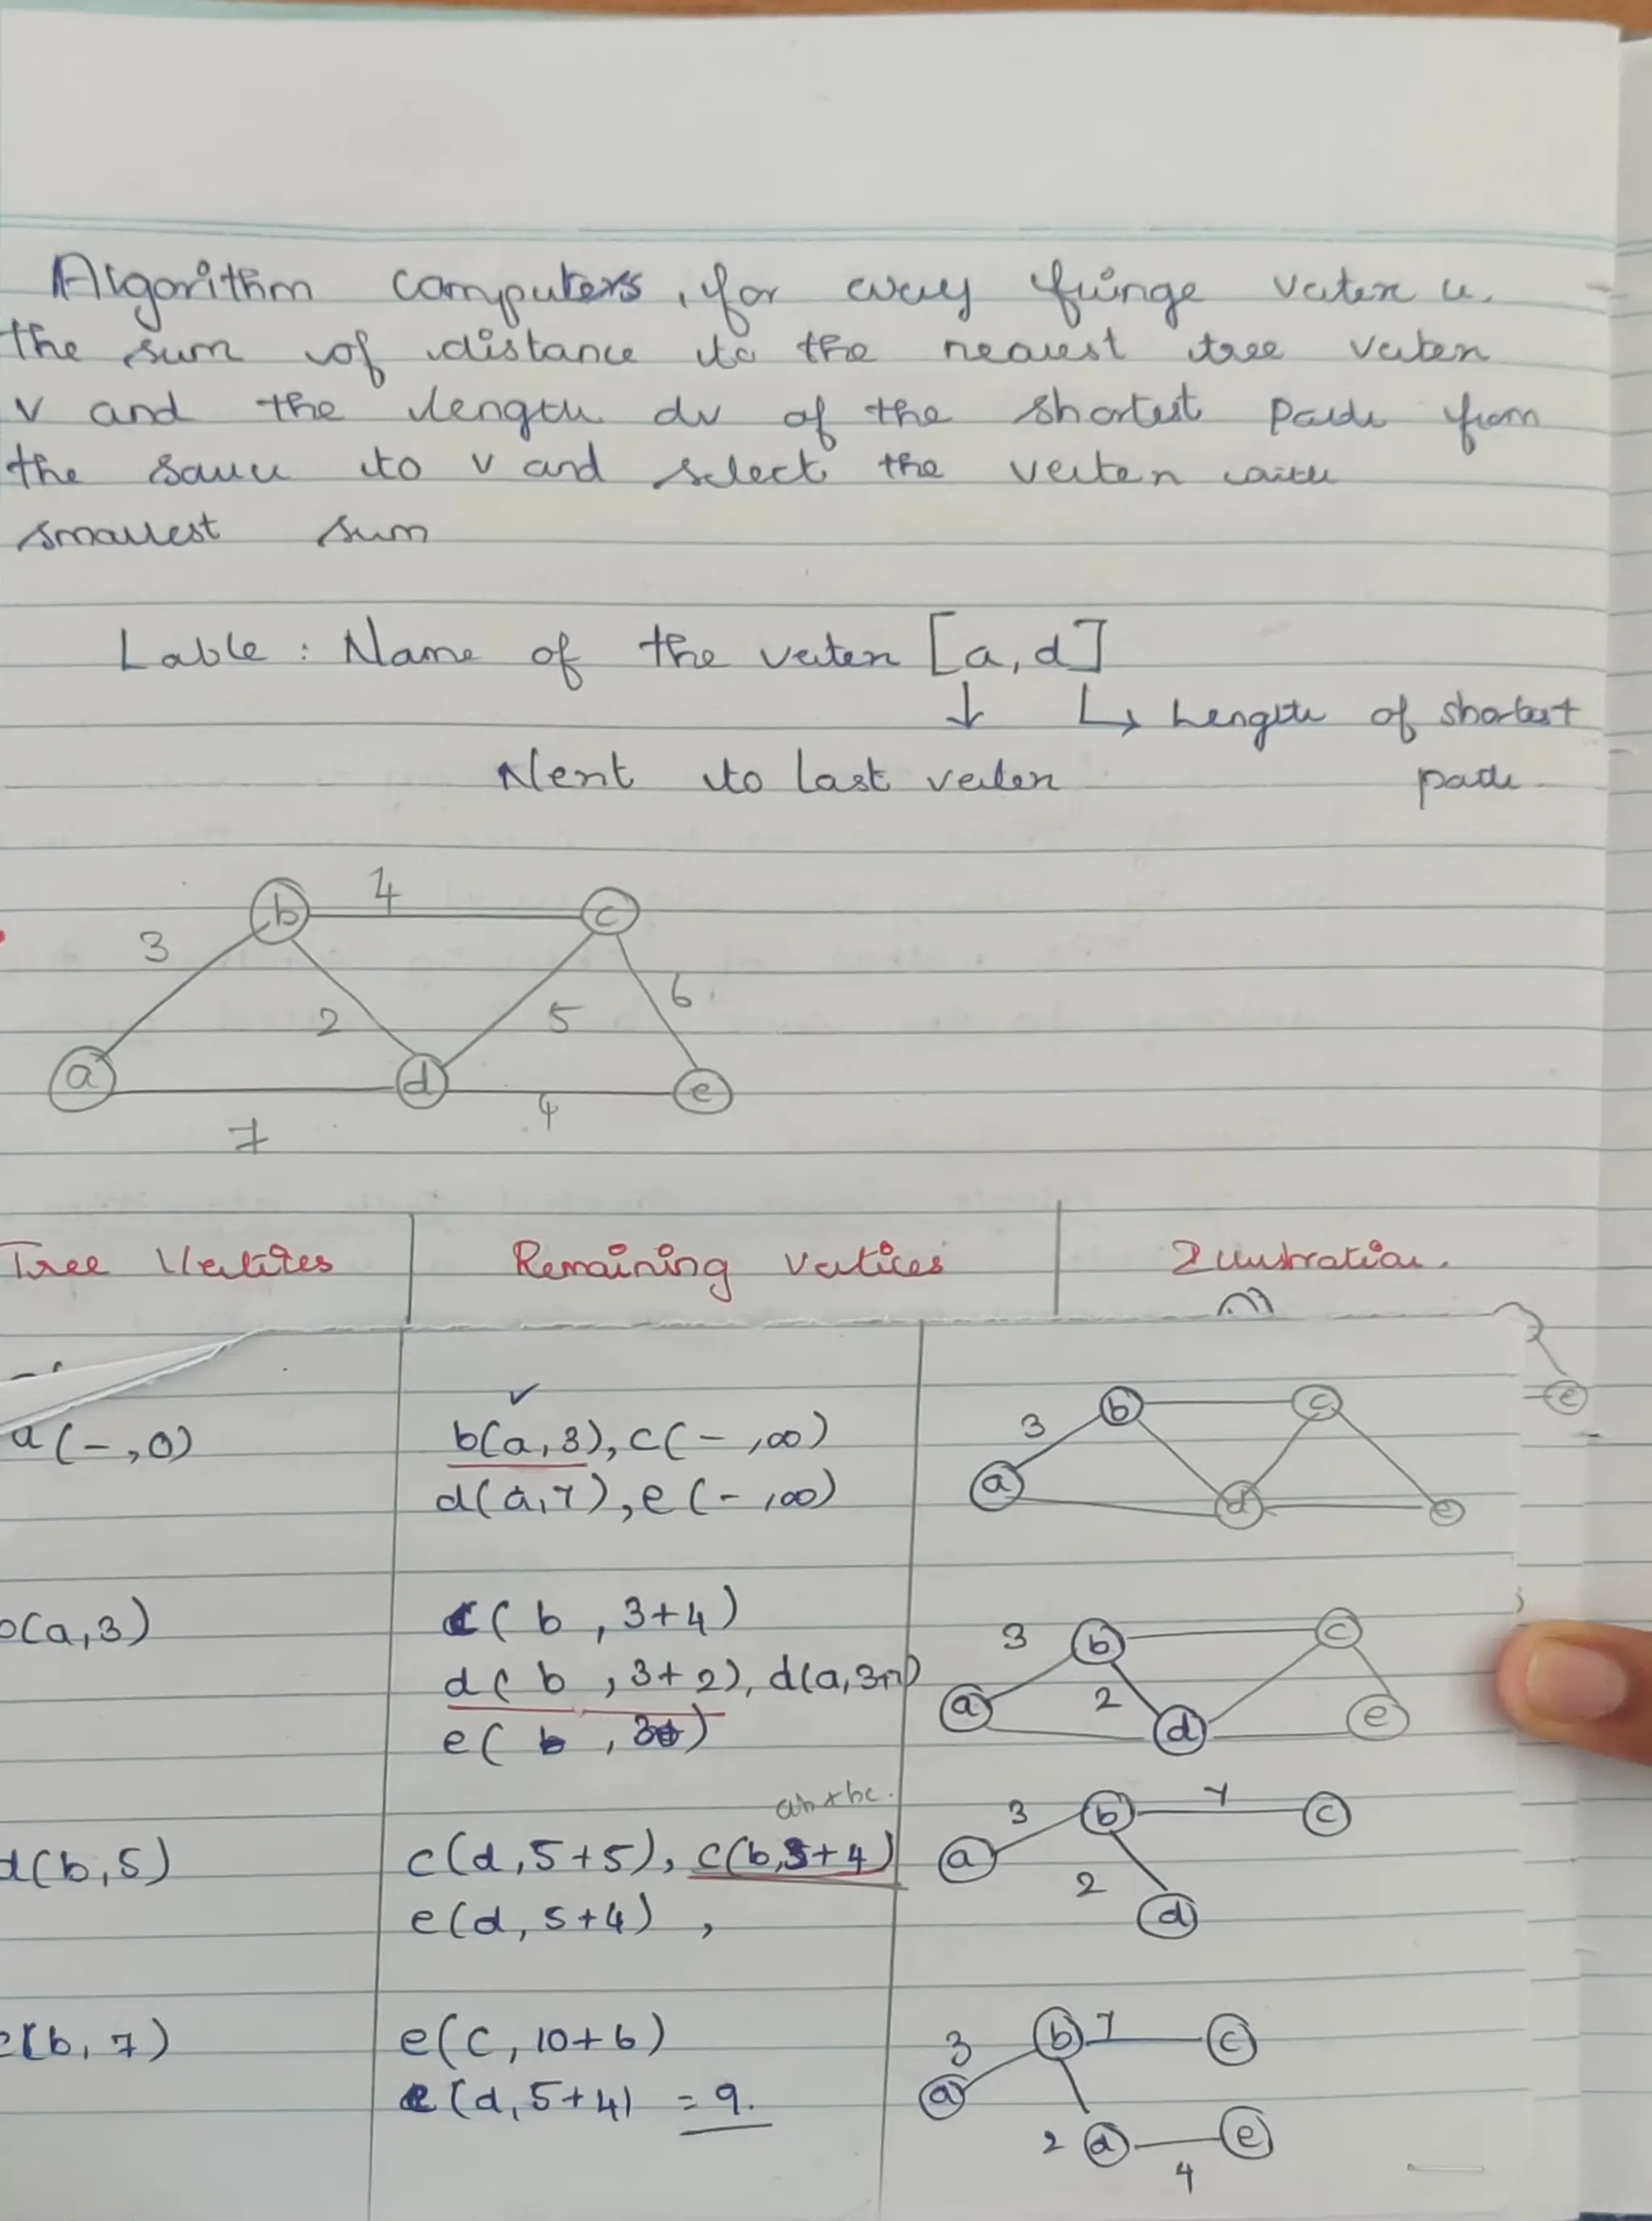 Algorithm computers, for every fringe vertex u.
the sum of distance to the nearest tree vertex
v and the length dv of the shortest path from
the source to v and select the vertex with
smallest sum
Lable : Name of the vertex [a, d]
↓ ↳ Length of shortest
Next to last vertex path
b 4 c
3 6
2 5
a d e
7 4
Tree Vertices Remaining Vertices Illustration.
e
a(-,0) b(a,3), c(-,∞)
d(a,7), e(-,∞)
3 b c
a d e
(a,3) c(b, 3+4)
d(b, 3+2), d(a,
e(
3 b c
a 2 d e
ab+bc.
d(b,5) c(d,5+5), c(b,3+4)
e(d,5+4) ,
3 b c
a 2
d
(b, 7) e(c, 10+6)
e(d,5+4) = 9.
3 b 7 c
a
2 d e
4